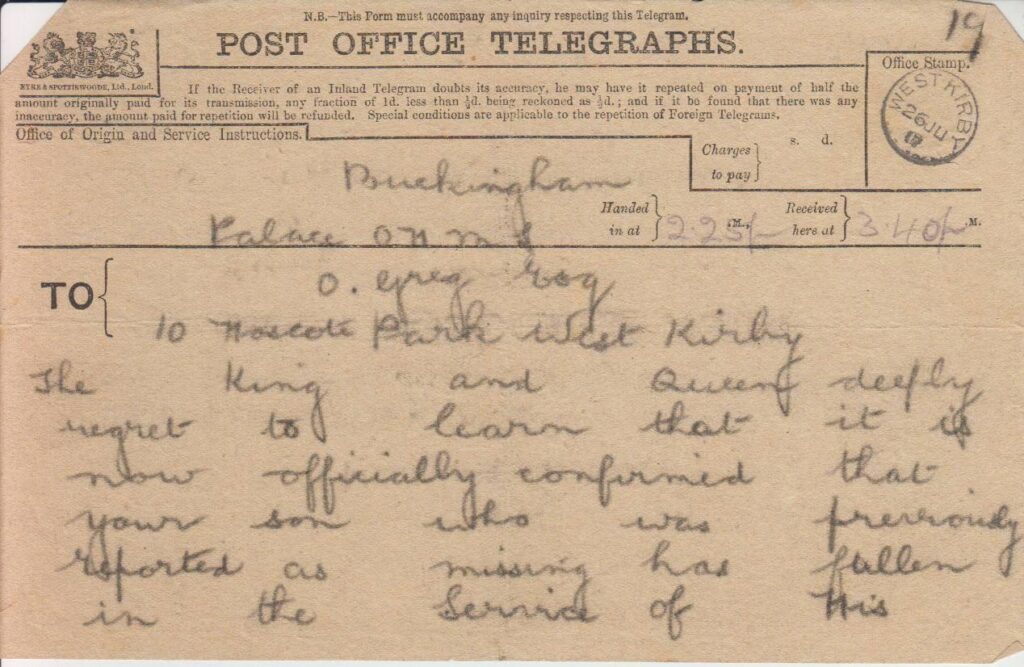 N.B.—This Form must accompany any inquiry respecting this Telegram.
19
POST OFFICE TELEGRAPHS.
EYRE & SPOTTISWOODE, Ltd., Lond.
If the Receiver of an Inland Telegram doubts its accuracy, he may have it repeated on payment of half the
amount originally paid for its transmission, any fraction of 1d. less than ½d. being reckoned as ½d.; and if it be found that there was any
inaccuracy, the amount paid for repetition will be refunded. Special conditions are applicable to the repetition of Foreign Telegrams.
Office Stamp.
WEST KIRBY
26 JU
17
Office of Origin and Service Instructions.
Charges
to pay
s. d.
Buckingham
Palace OHMS
Handed
in at
2.25
M.,
Received
here at
3.40
M.
TO
O. Greg Esq
10 Park West Kirby
The King and Queen deeply
regret to learn that it is
now officially confirmed that
your son who was previously
reported as missing has fallen
in the Service of His